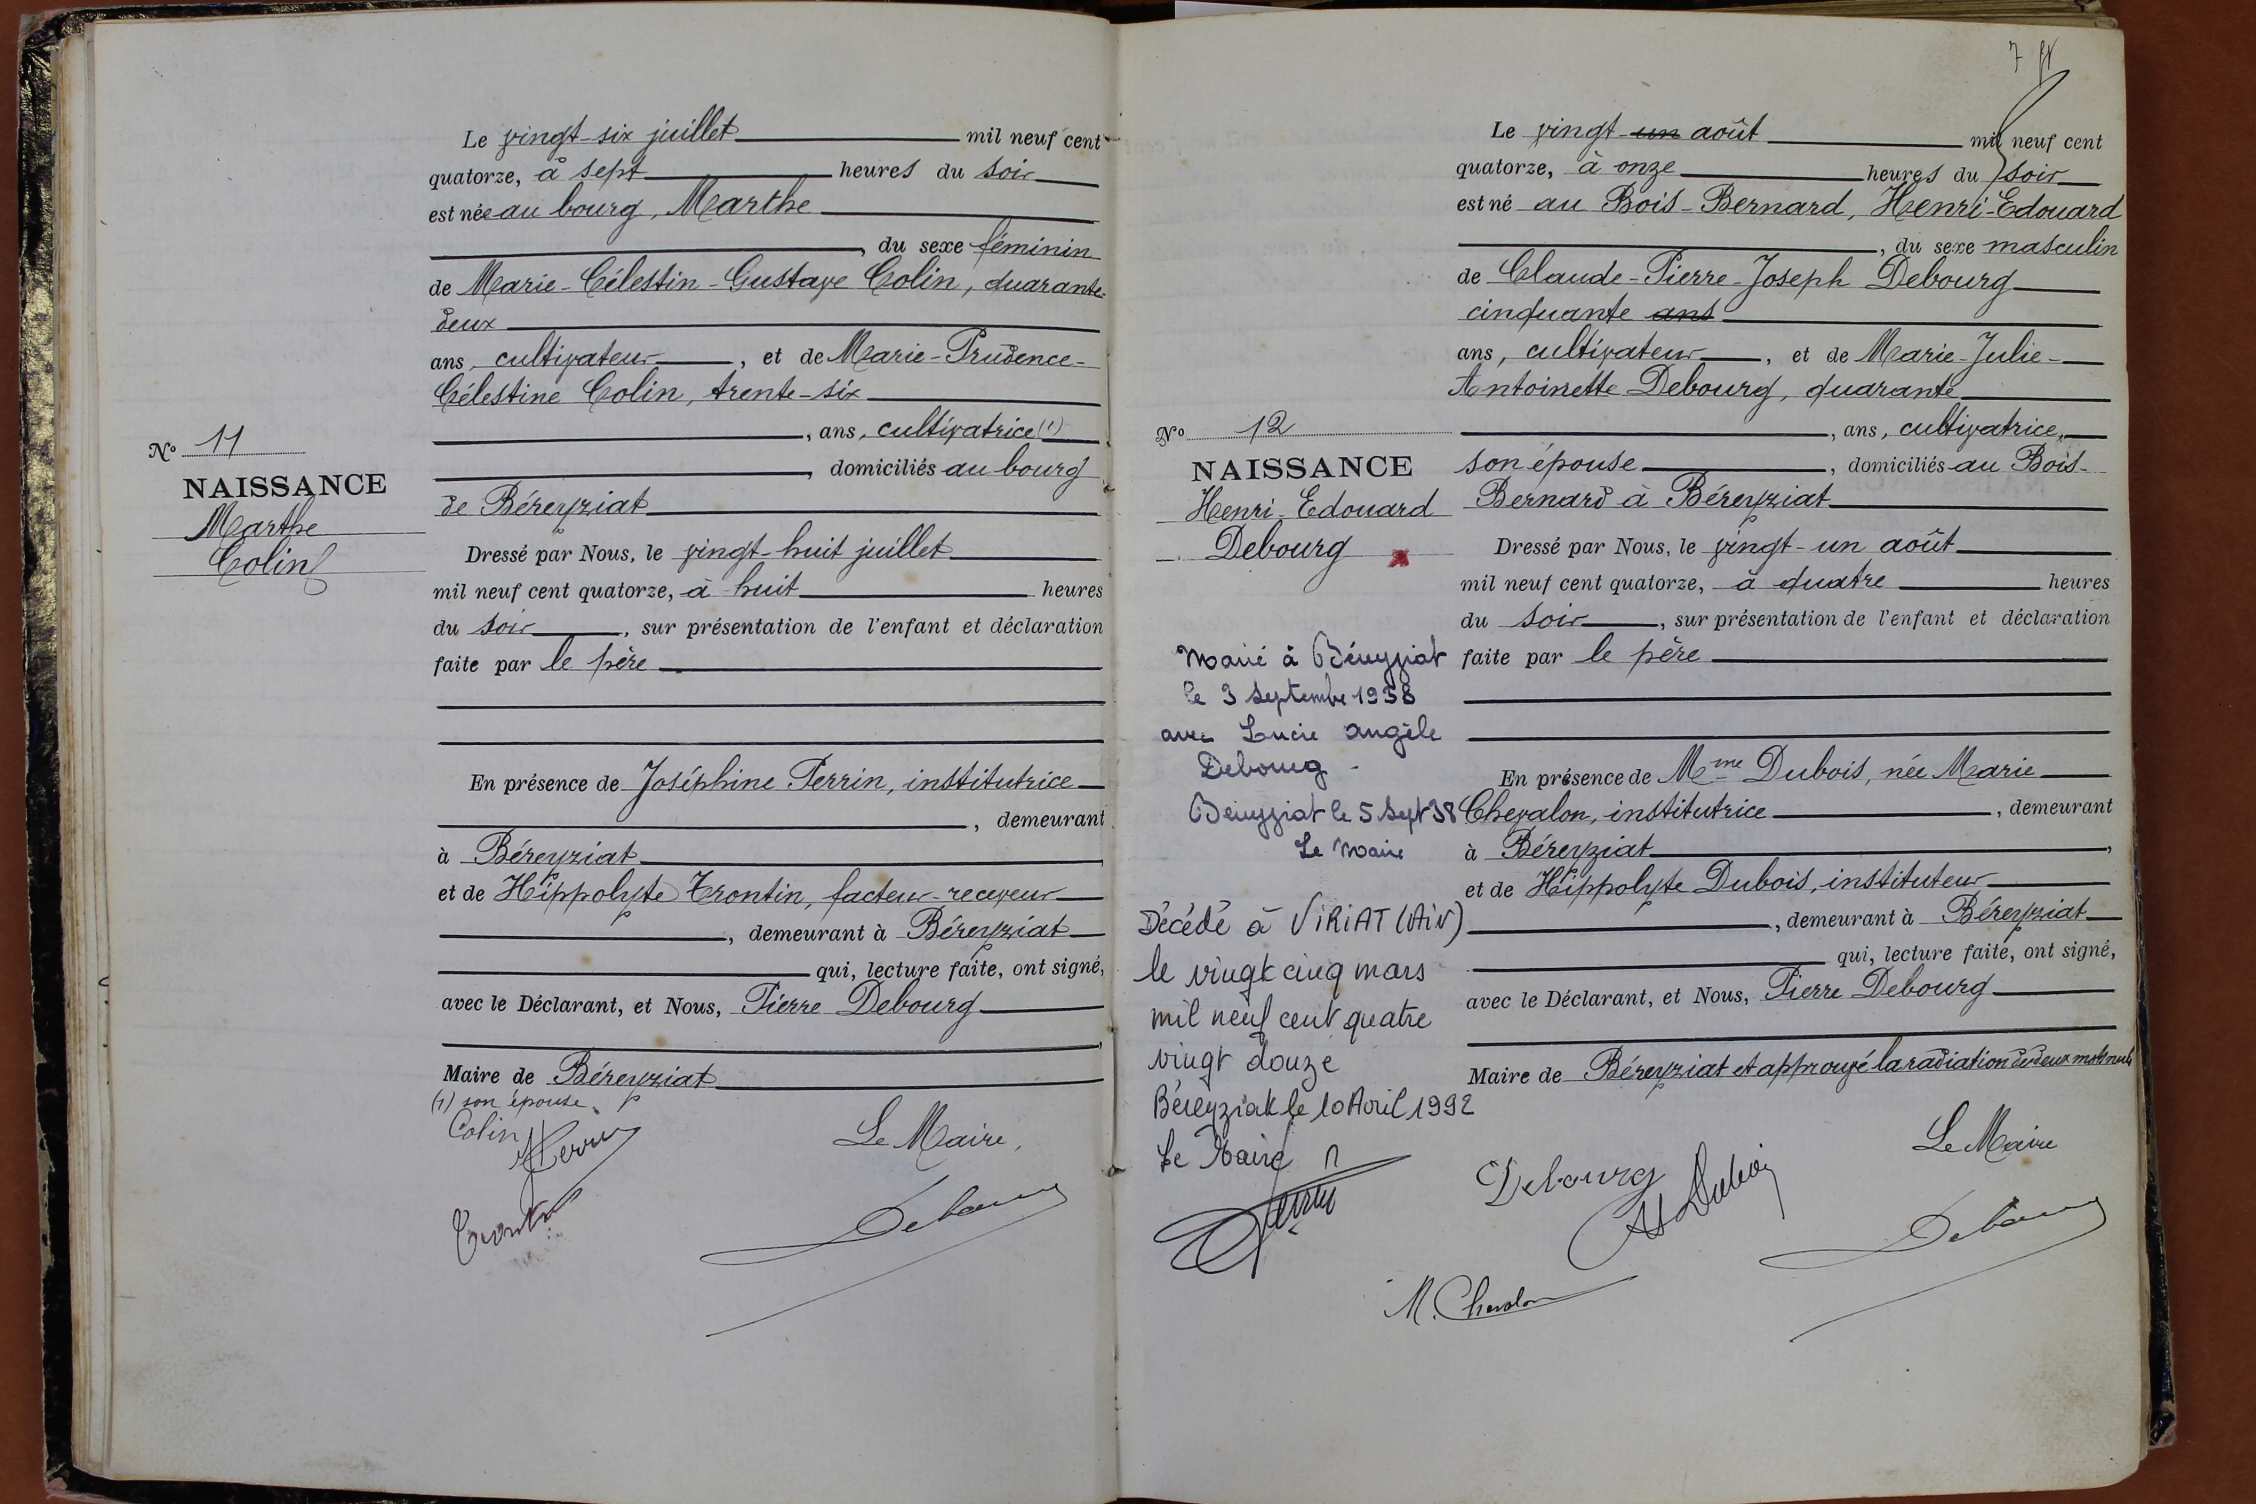 Le vingt-six juillet mil neuf cent
quatorze, à sept heures du soir
est née au bourg, Marthe
, du sexe féminin
de Marie-Célestin-Gustave Colin, quarante-
deux
ans, cultivateur, et de Marie-Prudence-
Célestine Colin, trente-six
, ans, cultivatrice (1)
, domiciliés au bourg
de Béreyziat
Nº 11
NAISSANCE
Marthe
Colin
Dressé par Nous, le vingt-huit juillet
mil neuf cent quatorze, à huit heures
du soir, sur présentation de l'enfant et déclaration
faite par le père
En présence de Joséphine Perrin, institutrice
, demeurant
à Béreyziat
et de Hippolyte Trontin, facteur-receveur
, demeurant à Béreyziat
qui, lecture faite, ont signé,
avec le Déclarant, et Nous, Pierre Debourg
Maire de Béreyziat
(1) son épouse.
Colin
Le Maire,
Debourg
7
Le vingt-un août mil neuf cent
quatorze, à onze heures du soir
est né au Bois-Bernard, Henri-Edouard
, du sexe masculin
de Claude-Pierre-Joseph Debourg
cinquante ans
ans, cultivateur, et de Marie-Julie-
Antoinette Debourg, quarante
, ans, cultivatrice,
son épouse, domiciliés au Bois-
Bernard à Béreyziat
Nº 12
NAISSANCE
Henri-Edouard
Debourg
Dressé par Nous, le vingt-un août
mil neuf cent quatorze, à quatre heures
du soir, sur présentation de l'enfant et déclaration
faite par le père
En présence de Mme Dubois, née Marie
Chevalon, institutrice, demeurant
à Béreyziat,
et de Hippolyte Dubois, instituteur
, demeurant à Béreyziat
qui, lecture faite, ont signé,
avec le Déclarant, et Nous, Pierre Debourg
Maire de Béreyziat et approuvé la radiation de deux mots nuls
Marié à Béreyziat
le 3 septembre 1938
avec Lucie Angèle
Debourg -
Béreyziat le 5 Sept 38
Le Maire
Décédé à VIRIAT (AIN)
le vingt cinq mars
mil neuf cent quatre
vingt douze
Béreyziat le 10 Avril 1992
Le Maire
Le Maire
Debourg
H Dubois
Debourg
M. Chevalon